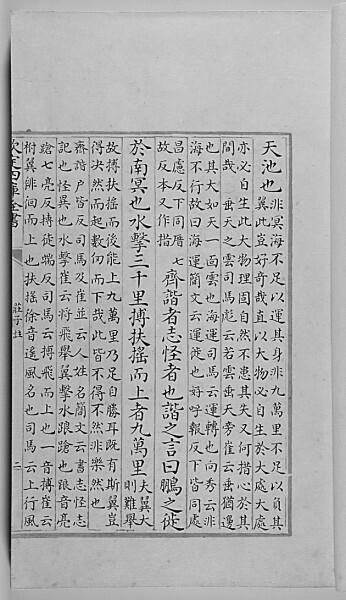 天池也
非冥海不足以運其身非九萬里不足以負其
翼此豈好竒哉直以大物必自生於大處大處
亦必自生此大物理固自然不患其失又何措心於其
間哉 垂天之雲司馬彪云若雲垂天旁崔云垂猶邊
也其大如天一面雲也海運司馬云運轉也向秀云非
海不行故曰海運簡文云運徙也好呼報反下皆同處
昌慮反下同厝七
故反本又作措
齊諧者志怪者也諧之言曰鵬之徙
於南冥也水擊三千里摶扶摇而上者九萬里
夫翼大
則難舉
故摶扶摇而後能上九萬里乃足自勝耳既有斯翼豈
得決然而起數仞而下哉此皆不得不然非樂然也
齊諧户皆反司馬及崔並云人姓名簡文云書志怪志
記也怪異也水擊崔云將飛舉翼擊水踉蹌也踉音亮
蹌七亮反摶徒端反司馬云摶飛而上也一音搏崔云
拊翼徘徊而上也扶摇徐音遥風名也司馬云上行風
欽定四庫全書
莊子注
二